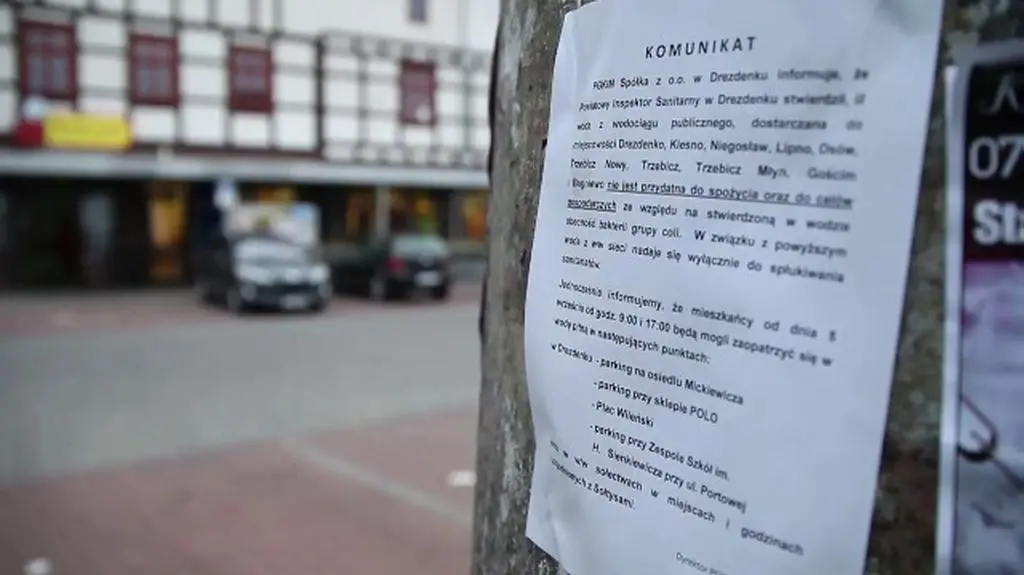 KOMUNIKAT
PGKiM Spółka z o.o. w Drezdenku informuje, że
Powiatowy Inspektor Sanitarny w Drezdenku stwierdził, iż
woda z wodociągu publicznego, dostarczana do
miejscowości Drezdenko, Klesno, Niegosław, Lipno, Osów,
Trzebicz Nowy, Trzebicz, Trzebicz Młyn, Gościm
i Bagniewo nie jest przydatna do spożycia oraz do celów
gospodarczych ze względu na stwierdzoną w wodzie
obecność bakterii grupy coli. W związku z powyższym
woda z w/w sieci nadaje się wyłącznie do spłukiwania
sanitariatów.
Jednocześnie informujemy, że mieszkańcy od dnia 5
września od godz. 9:00 i 17:00 będą mogli zaopatrzyć się w
wodę pitną w następujących punktach:
w Drezdenku - parking na osiedlu Mickiewicza
- parking przy sklepie POLO
- Plac Wileński
- parking przy Zespole Szkół im.
H. Sienkiewicza przy ul. Portowej
oraz w w/w sołectwach w miejscach i godzinach
uzgodnionych z Sołtysami.
Dyrektor
07